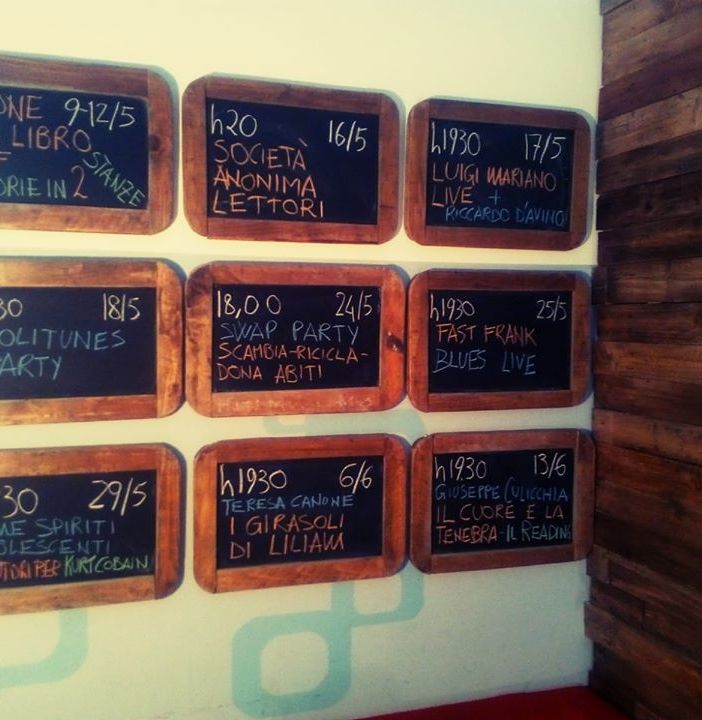 9-12/5
LIBRO
STANZE
IN 2
h20 16/5
SOCIETÀ
ANONIMA
LETTORI
h1930 17/5
LUIGI MARIANO
LIVE +
RICCARDO D'AVINO
30 18/5
OLITUNES
ARTY
18,00 24/5
SWAP PARTY
SCAMBIA-RICICLA-
DONA ABITI
h1930 25/5
FAST FRANK
BLUES LIVE
30 29/5
SPIRITI
LESCENTI
PER KURT COBAIN
h1930 6/6
TERESA CANONE
I GIRASOLI
DI LILIAM
h1930 13/6
GIUSEPPE CULICCHIA
IL CUORE E LA
TENEBRA-IL READING